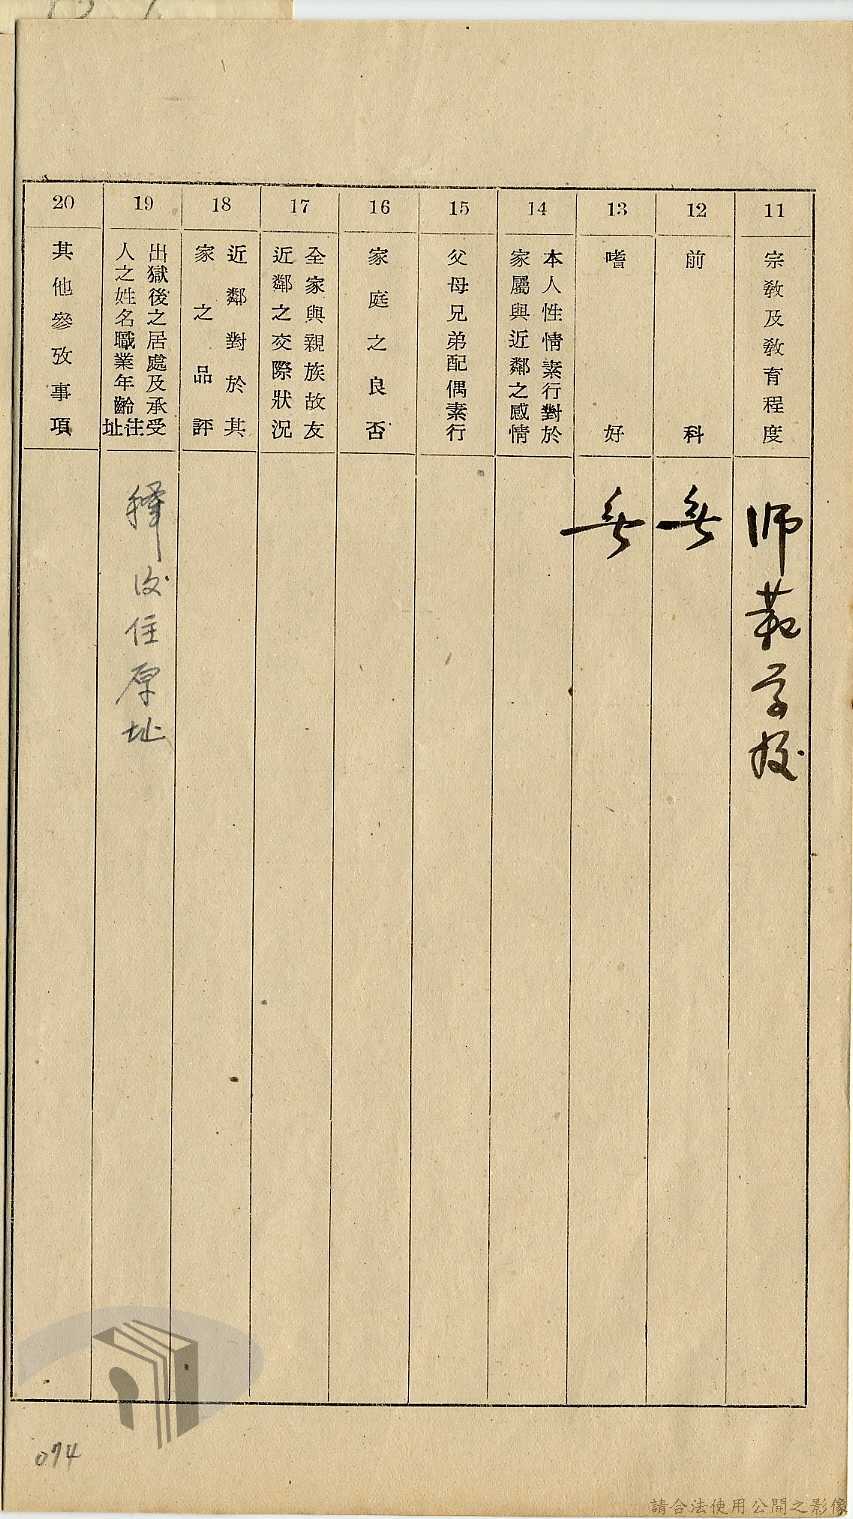 11
宗教及教育程度
师范学校
12
前科
無
13
嗜好
無
14
本人性情素行對於
家屬與近鄰之感情
15
父母兄弟配偶素行
16
家庭之良否
17
全家與親族故友
近鄰之交際狀況
18
近鄰對於其
家之品評
19
出獄後之居處及承受
人之姓名職業年齡住址
釋后住原址
20
其他參攷事項
074
請合法使用公開之影像